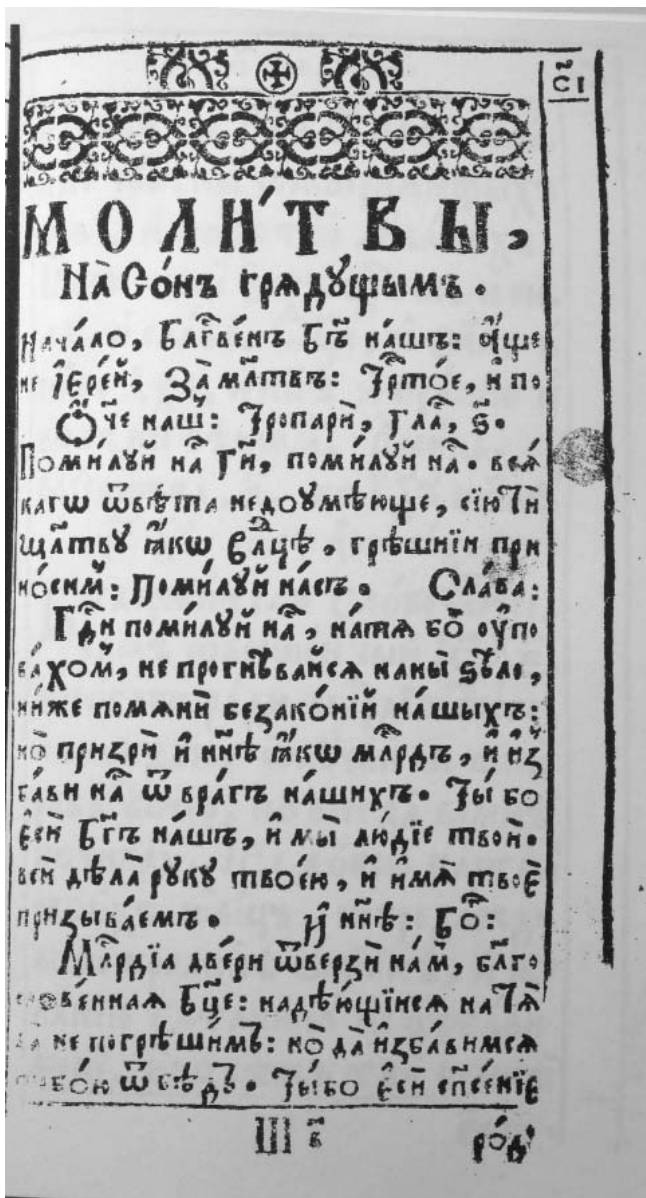 с҃і
МОЛИ́ТВЫ,
На̀ Со́нъ грѧдꙋ́щымъ.
Нача́ло, Бл҃гве́нъ Бг҃ъ на́шъ: а҆́ще
не і҆ере́й, За̀ мл҃твъ: Трⷭ҇то́е, и҆ по
Ѻ҆́ч҃е наш: Тропарѝ, Гла́, ѕ҃.
Поми́лꙋй наⷭ҇ Гдⷭ҇и, поми́лꙋй наⷭ҇. всѧ́
кагѡ ѿвѣ́та недоꙋмѣ́юще, сїю Тѝ
мл҃твꙋ ꙗ҆́кѡ влⷣцѣ, грѣ́шнїи при
но́сим: Поми́лꙋй на́съ. Сла́ва:
Гдⷭ҇и поми́лꙋй наⷭ҇, на́тѧ бо оу҆по
ва́хом, не прогнѣ́вайсѧ наны̀ ѕѣло̀,
ни́же помѧнѝ беззако́нїй на́шыхъ:
но̀ призрѝ и҆ нн҃ѣ ꙗ҆́кѡ млⷭ҇рдъ, и҆ и҆з
ба́ви наⷭ҇ ѿ вра́гъ на́шихъ. Ты́ бо
є҆сѝ Бг҃ъ на́шъ, и҆ мы̀ лю́дїе твоѝ.
всѝ дѣла̀ рꙋкꙋ̀ твое́ю, и҆ и҆́мѧ твоѐ
призыва́емъ. И҆ нн҃ѣ: Боⷢ҇:
Млⷭ҇рдїа две́ри ѿверзѝ на́м, бл҃го
слове́ннаѧ Бц҃е: надѣ́ющїисѧ на Тѧ̀
да̀ не погрѣши́мъ: но̀ да̀ и҆зба́вимсѧ
тобо́ю ѿ бѣ́дъ. Ты́ бо є҆сѝ сп҃се́нїе
Ш в҃ ро́дꙋ